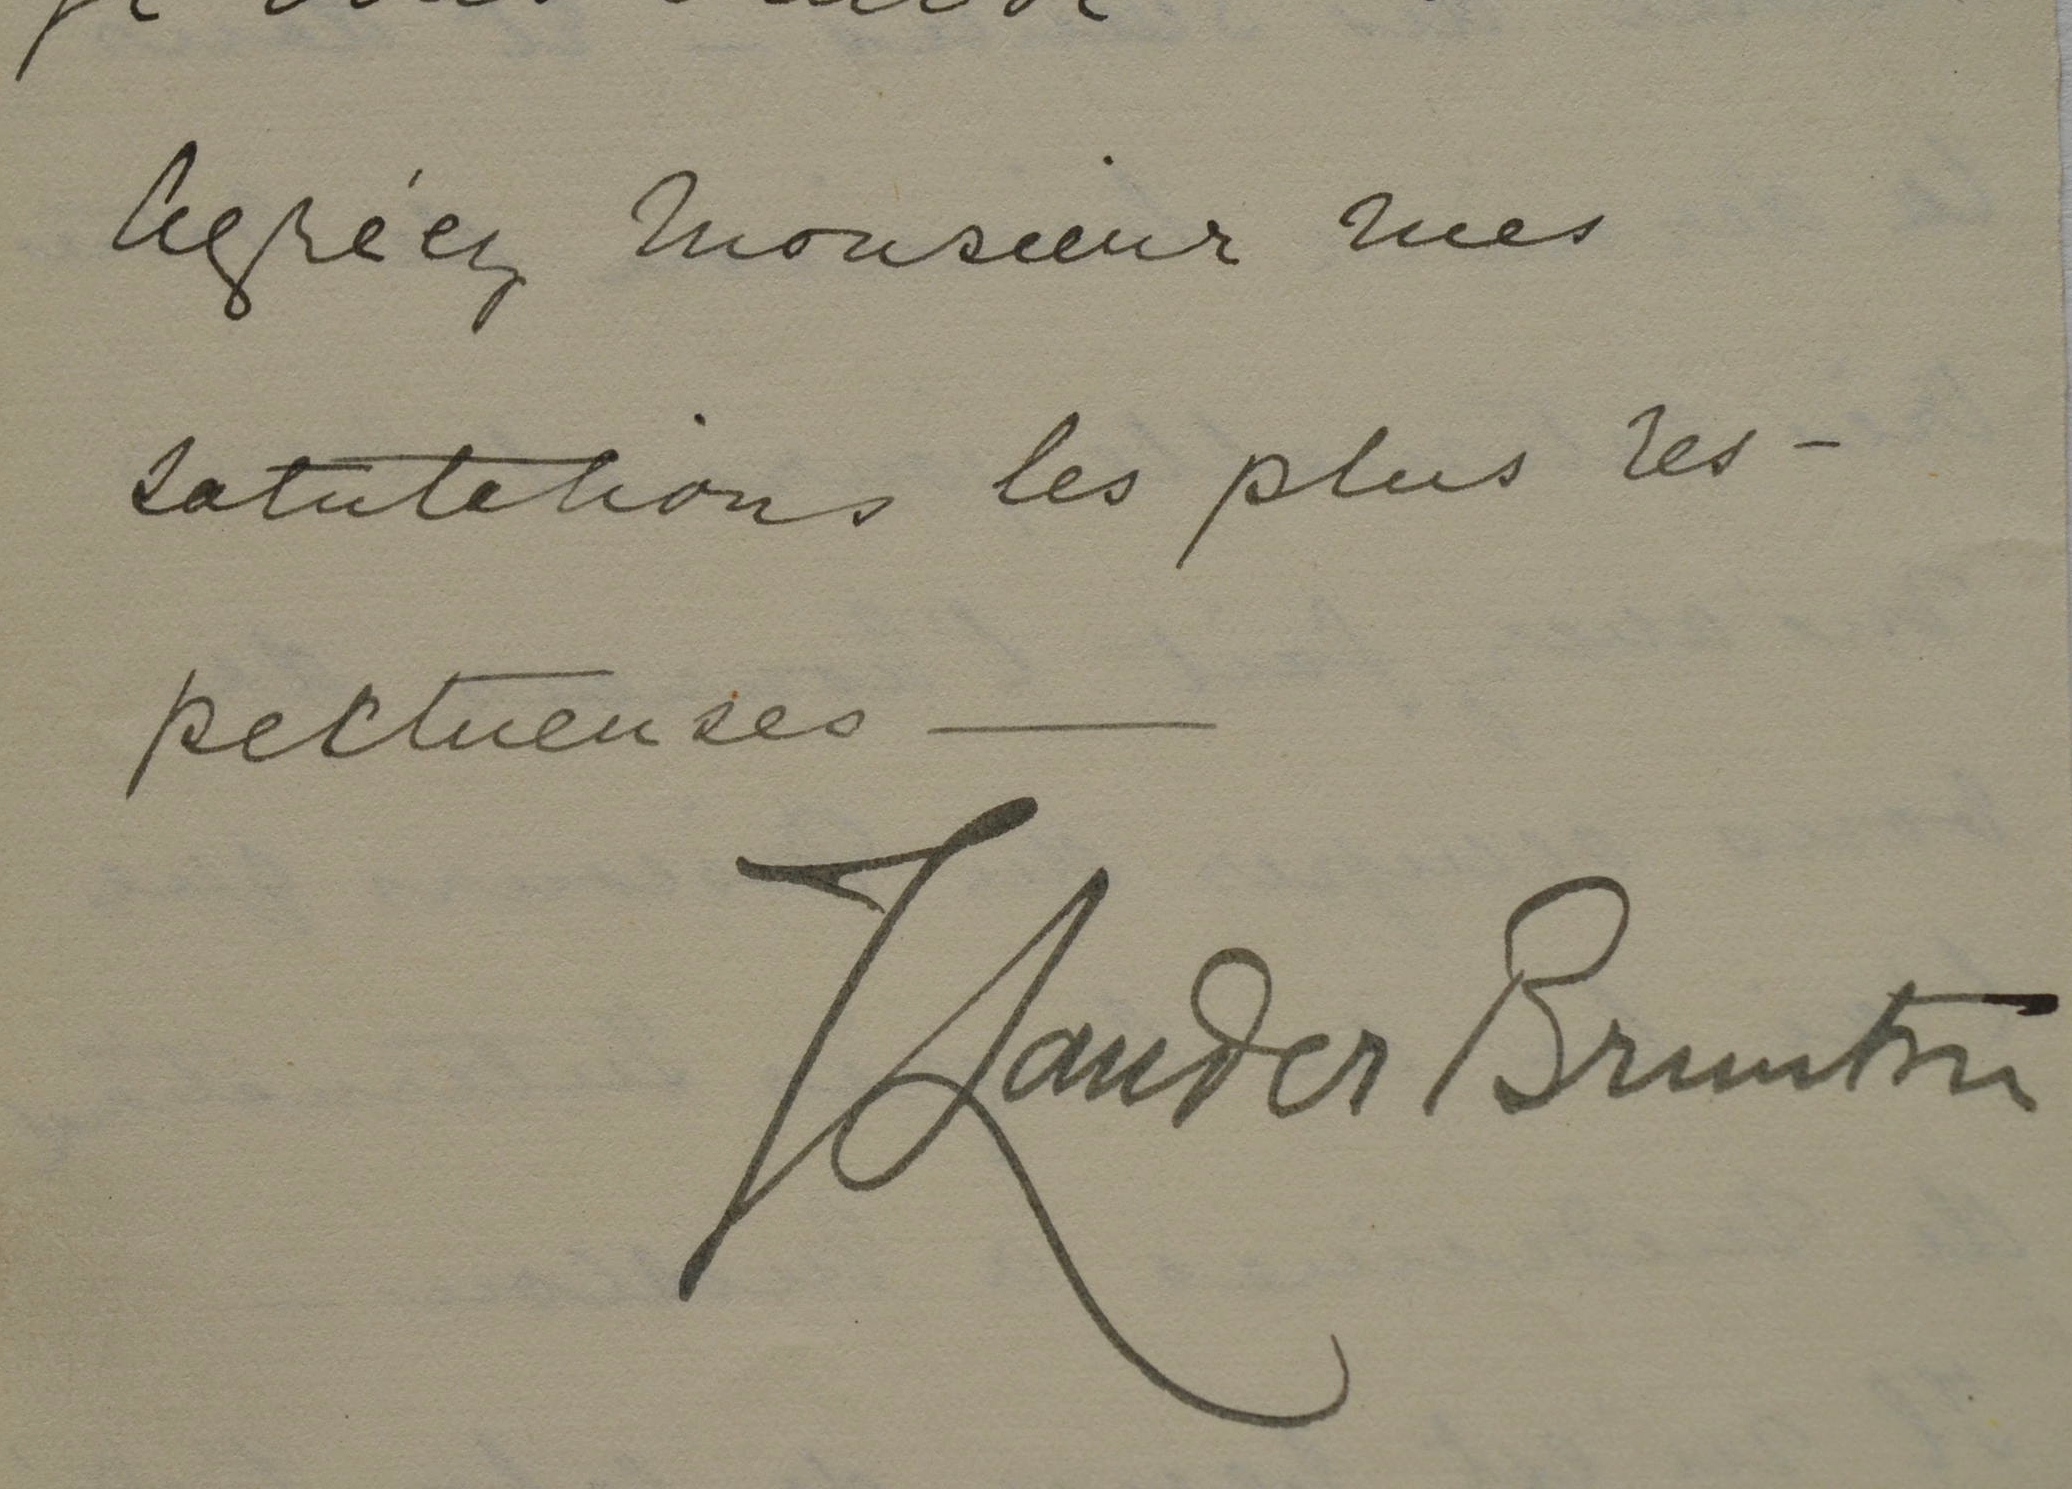 je vous
Agréez Monsieur mes
salutations les plus res-
pectueuses —
T Lauder Brunton